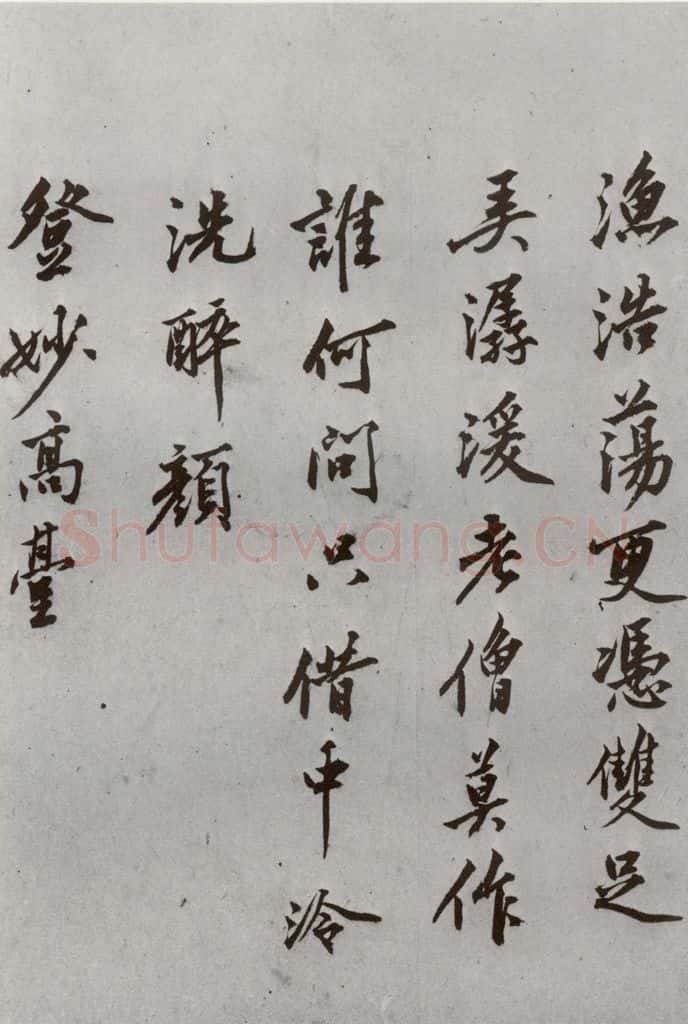 漁浩蕩更憑雙足
弄潺湲老僧莫作
誰何問只借中泠
洗醉顔
登妙高臺
Shufawang.CN